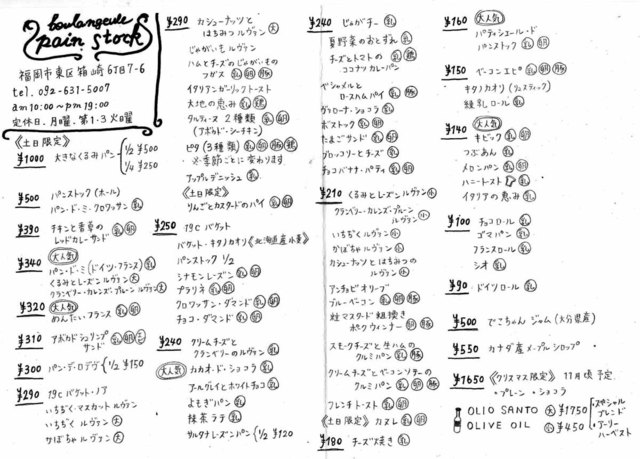 boulangerie
pain stock
福岡市東区箱崎6丁目7-6
tel. 092-631-5007
am10:00〜pm19:00
定休日. 月曜. 第1・3火曜
《土日限定》
¥1000 大きなくるみパン 1/2 ¥500
1/4 ¥250
¥500 パンストック(ホール)
パン・ド・ミ・クロワッサン 乳
¥390 チキンと香草の
レッドカレーサンド 乳 卵
¥340 大人気
パン・ド・ミ(ドイツ・フランス) 乳
くるみとレーズン ルヴァン 大
クランベリー・カレンズ・プルーン ルヴァン 大
¥320 大人気
めんたい・フランス 乳 卵
¥310 アボカドシュリンプ
サンド 乳 卵
¥300 パン・デ・ロデヴ 1/2 ¥150
¥290 19c バゲット・ノア
いちぢく・マスカット ルヴァン
いちぢく ルヴァン 大
かぼちゃ ルヴァン 大
¥290 カシューナッツと
はちみつ ルヴァン 大
じゃがいも ルヴァン
ハムとチーズのじゃがいもの
フガス 乳 卵 豚
イタリアンガーリックトースト
大地の恵み 乳 鶏
タルティーヌ 2種類 乳 卵
(アボカド・シーチキン)
ピタ(3種類) 乳 卵 豚
※季節ごとに変わります
アップルデニッシュ 乳
《土日限定》
りんごとカスタードのパイ 乳 卵
¥250 19c バゲット
バゲット・キタノカオリ《北海道産小麦》
パンストック 1/2
シナモンレーズン 乳
プラリネ 乳 卵
クロワッサン・ダマンド 乳 卵
チョコ・ダマンド 乳 卵
¥240 クリームチーズと
クランベリーのルヴァン 乳
大人気 カカオ・ド・ショコラ 乳
アールグレイとホワイトチョコ 乳
よもぎパン 乳
抹茶ラテ 乳
サルタナレーズンパン 1/2 ¥120
¥240 じゃがチー 乳
夏野菜のおとずれ 乳
チーズとトマトの 乳 鶏
ココナツカレーパン
ベシャメルと
ロースハムパイ 乳 豚
ヴァローナ・ショコラ 乳
ボストック 乳 卵
たまごサンド 乳 卵
ブロッコリーとチーズ 乳
チョコバナナ・パティ 乳 卵
¥210 くるみとレーズンルヴァン 小
クランベリー・カレンズ・プルーン
ルヴァン 小
いちぢく ルヴァン 小
かぼちゃ ルヴァン 小
カシューナッツとはちみつの
ルヴァン 小
アンチョビオリーブ
ブルーベーコン 乳 卵 豚
粒マスタード粗挽き
ポークウィンナー 卵 豚
スモークチーズと生ハムの
クルミパン 乳 豚
クリームチーズとベーコンソテーの
クルミパン 乳 卵 豚
フレンチトースト 乳 卵
《土日限定》 カヌレ 乳 卵
¥180 チーズ大好き 乳
¥160 大人気
パティシエール・ド・
パンストック 乳 卵
¥150 ベーコンエピ 乳 卵 豚
キタノカオリ(リュスティック)
練乳ロール 乳
¥140 大人気
キビック 乳 卵
つぶあん 乳
メロンパン 乳 卵
ハニートースト 乳
イタリアの恵み 乳
¥100 チョコロール 乳
ゴマパン 乳
フランスロール 乳
シオ 乳
¥90 ドイツロール 乳
¥500 でこちゃん ジャム(大分県産)
¥550 カナダ産メープルシロップ
¥1650 《クリスマス限定》 11月頃 予定
・プレーン ・ショコラ
OLIO SANTO 大 ¥1750 ・スペシャル
ブレンド
OLIVE OIL 小 ¥450 ・アーリー
ハーベスト